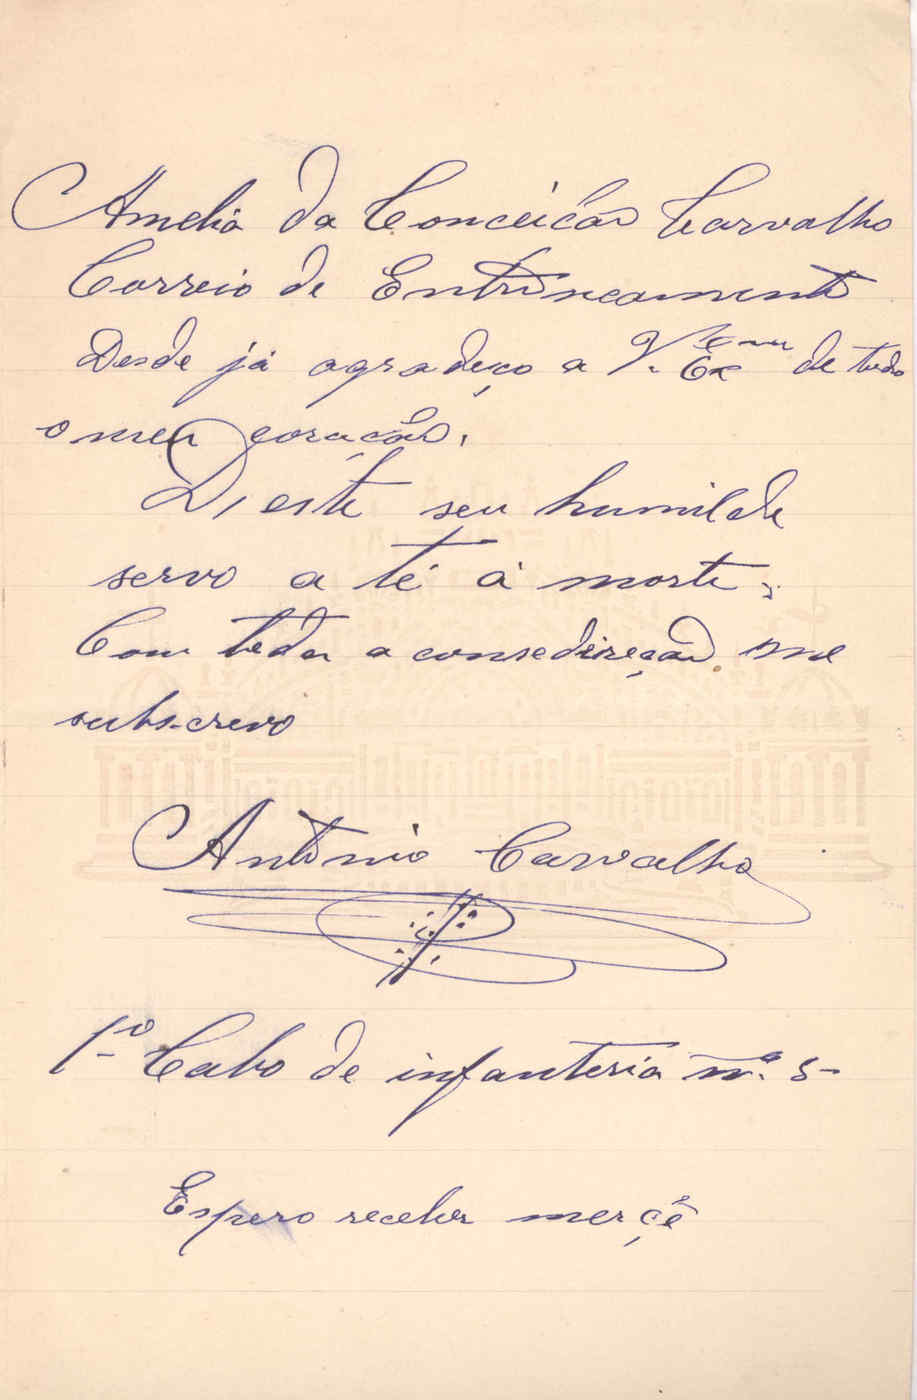 Amelia da Conceicão Carvalho
Correio de Entrincamento
Desde já agradeço a V. Exma de todo
o meu coração.
D, este seu humilde
servo a té á morte,
Com toda a consedireção me
subs-crevo
Antonio Carvalho
1º Cabo de infanteria nº. 5-
Espero receber merçê